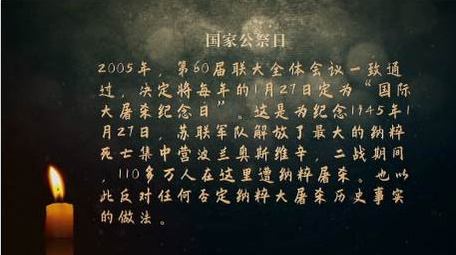 国家公祭日
2005年，第60届联大全体会议一致通
过，决定将每年的1月27日定为“国际
大屠杀纪念日”。这是为纪念1945年1
月27日，苏联军队解放了最大的纳粹
死亡集中营波兰奥斯维辛，二战期间
，110多万人在这里遭纳粹屠杀。也以
此反对任何否定纳粹大屠杀历史事实
的做法。